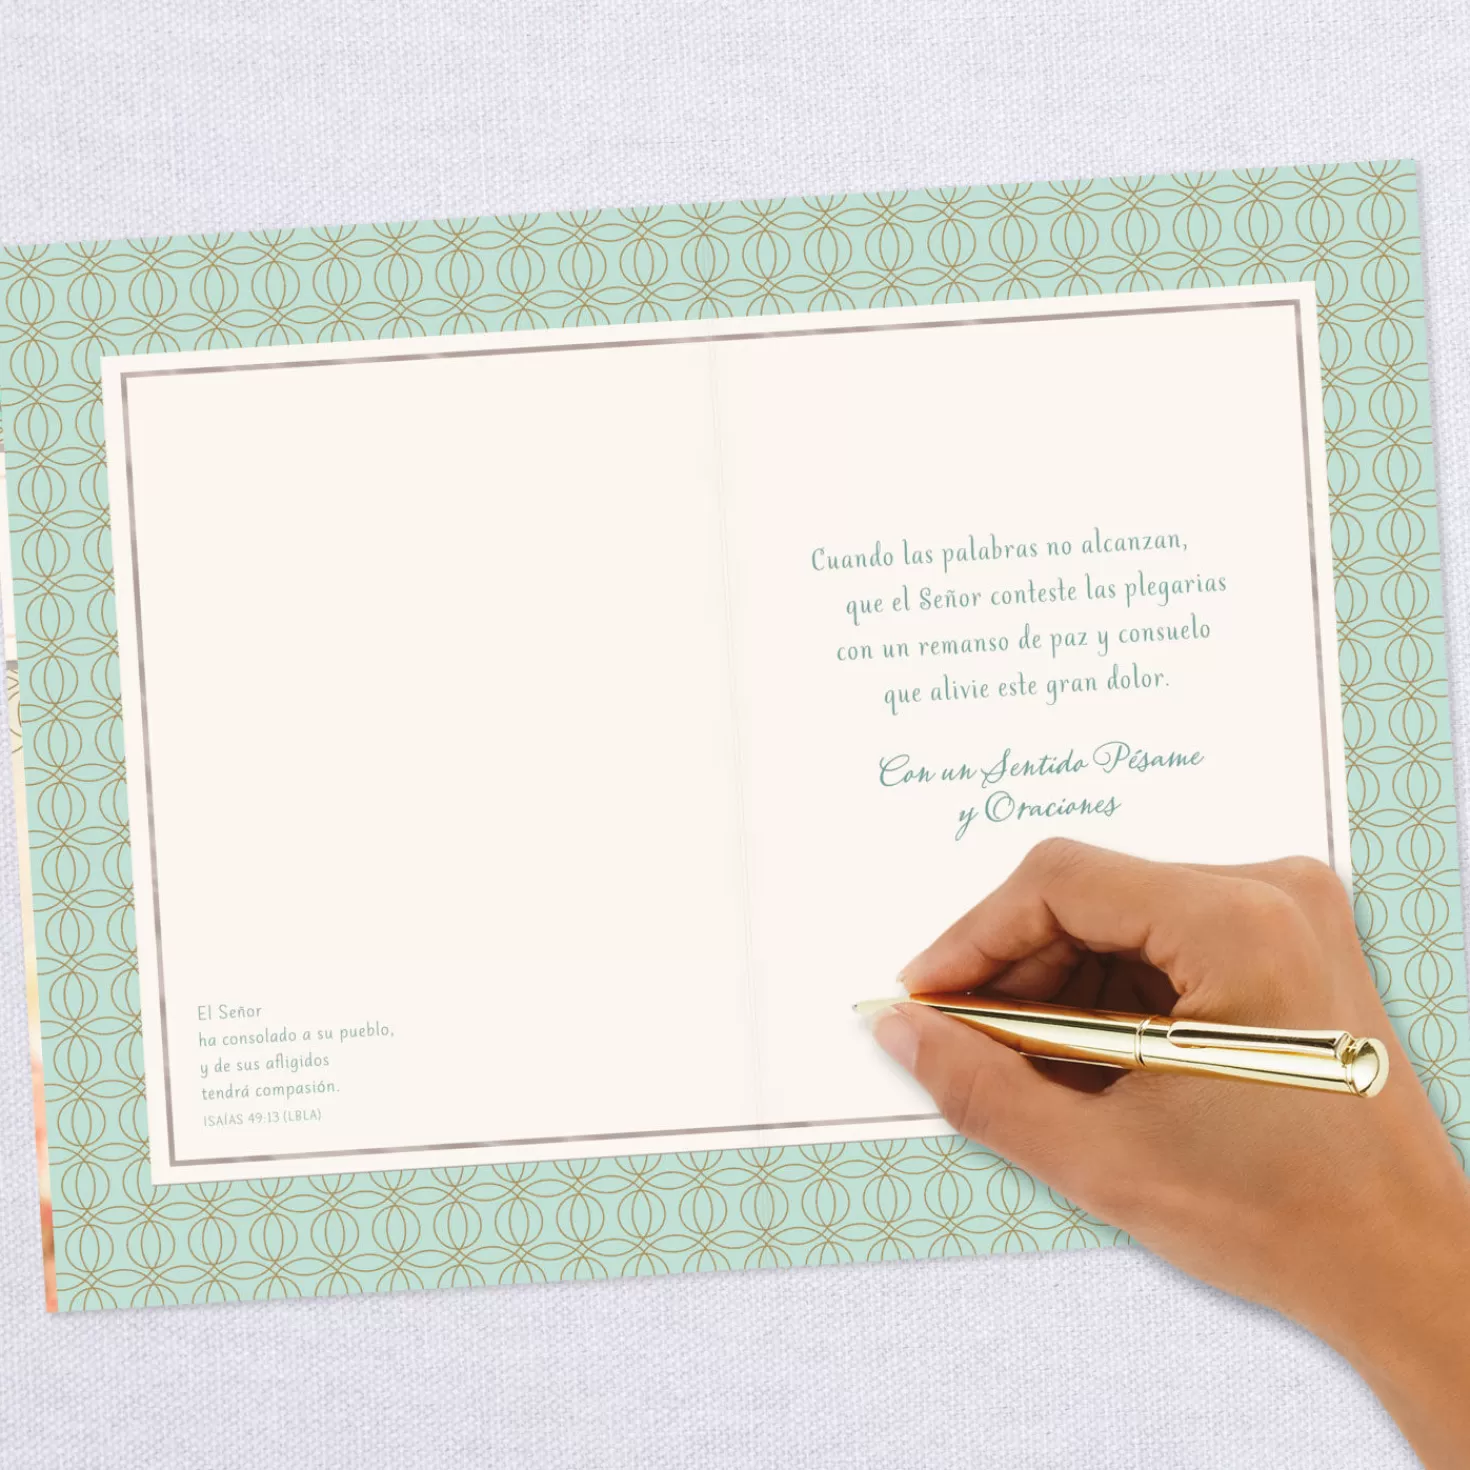 El Señor
ha consolado a su pueblo,
y de sus afligidos
tendrá compasión.
ISAÍAS 49:13 (LBLA)
Cuando las palabras no alcanzan,
que el Señor conteste las plegarias
con un remanso de paz y consuelo
que alivie este gran dolor.
Con un Sentido Pésame
y Oraciones